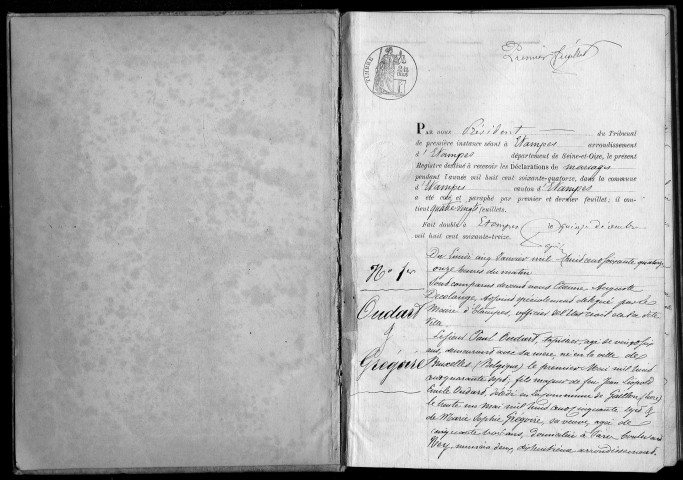 Premier feuillet
TIMBRE
PAR NOUS Président du Tribunal
de première instance séant à Etampes arrondissement
d'Etampes département de Seine-et-Oise, le présent
Registre destiné à recevoir les Déclarations de mariages
pendant l'année mil huit cent soixante-quatorze, dans la commune
d'Etampes canton d'Etampes
a été coté et paraphé par premier et dernier feuillet; il con-
tient quatre vingts feuillets.
Fait double à Etampes le quinze décembre
mil huit cent soixante-treize.
No 1er
Oudart
&
Grégoire
Du Lundi cinq Janvier mil huit cent soixante quatorze
onze heures du matin
Sont comparus devant nous Etienne Auguste
adjoint spécialement délégué par le
Maire d'Etampes, officier de l'Etat civil de la dite
Ville
Lesieur Paul Oudart, tapissier, agé de vingt six
ans, demeurant avec sa mère, né en la ville de
Bruxelles (Belgique) le premier Mai mil huit
cent quarante sept; fils majeur de feu Jean Léopold
Emile Oudart, décédé en la commune de Gaillon (Eure)
le trente un mai mil huit cent cinquante sept &
de Marie Sophie Grégoire, sa veuve, agée de
cinquante trois ans, domiciliée à Paris boulevard
Ney numéro deux, dixhuitième arrondissement.